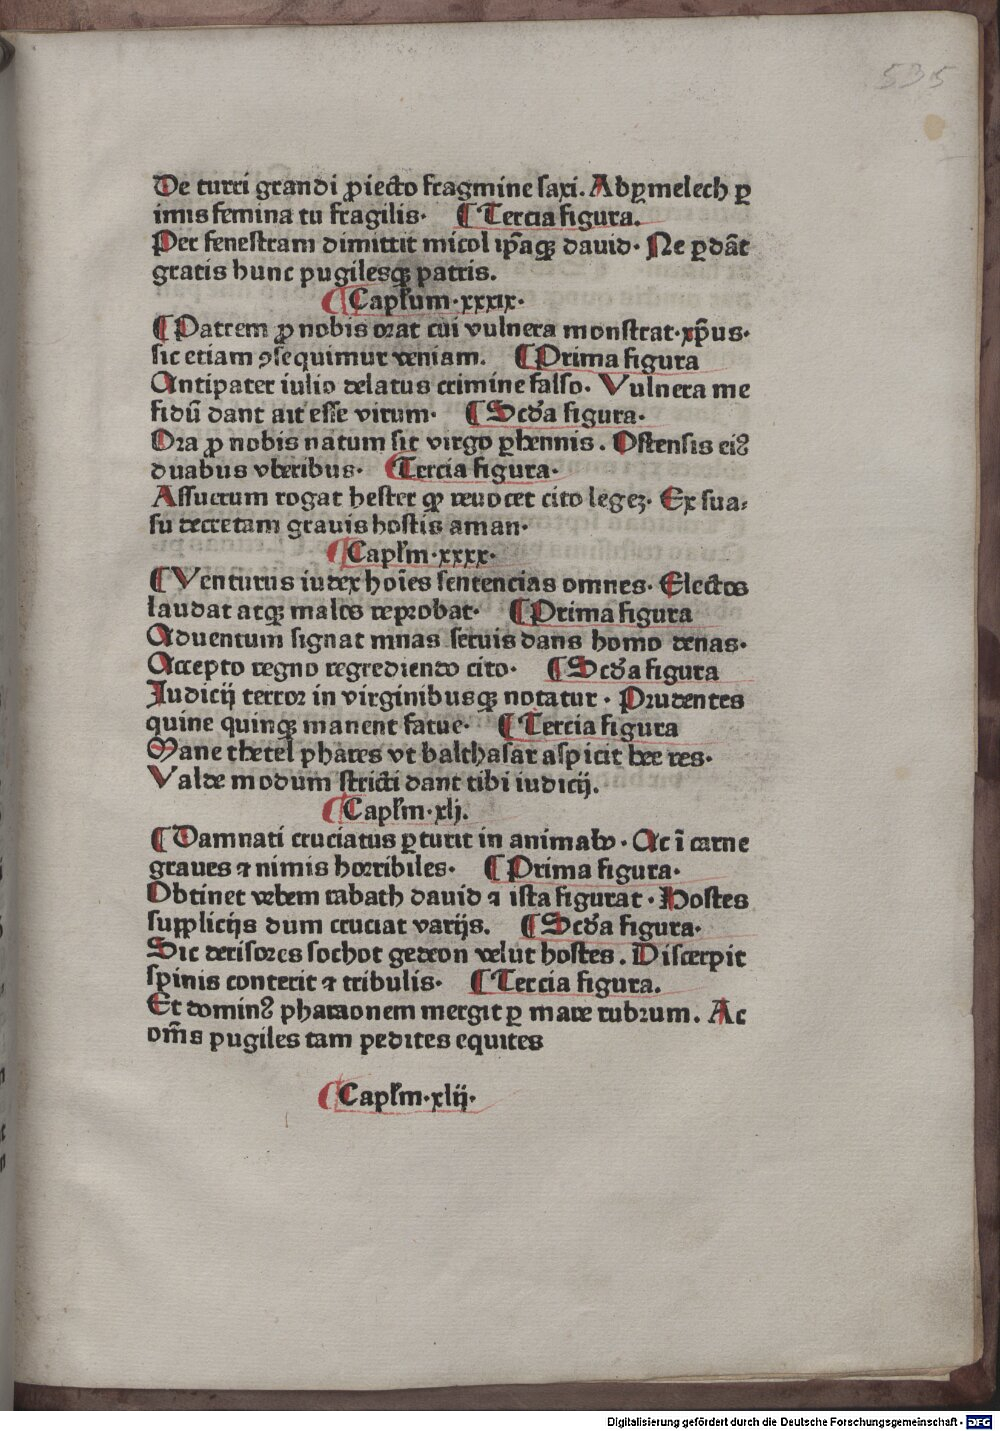 535
De turri grandi ꝓiecto fragmine saxi. Abꝑmelech ꝑ
imis femina tu fragilis· ¶ Tercia figura.
Per fenestram dimittit micol ip̄aqꝫ dauid· Ne ꝑdāt
gratis hunc pugilesqꝫ patris.
¶ Capl̄um·xxxix·
¶ Patrem ꝓ nobis orat cui vulnera monstrat·xp̄us·
sic etiam ꝯsequimur veniam. ¶ Prima figura
Antipater iulio delatus crimine falso· Vulnera me
fidū dant ait esse virum· ¶ Scd̄a figura·
Ora ꝓ nobis natum sit virgo ꝑhennis. Ostensis eiꝰ
duabus vberibus· ¶ Tercia figura·
Assuerum rogat hester qꝫ reuocet cito legeꝫ· Ex sua⸗
su decretam grauis hostis aman·
¶ Capl̄m·xxxx·
¶ Venturus iudex hoīes sentencias omnes· Electos
laudat atqꝫ malos reprobat· ¶ Prima figura
Aduentum signat mnas seruis dans homo denas·
Accepto regno regrediendo cito· ¶ Scd̄a figura
Iudicij terror in virginibusqꝫ notatur· Prudentes
quine quinqꝫ manent fatue· ¶ Tercia figura
Mane thetel phares vt balthasar aspicit hee res·
Valde modum stricti dant tibi iudicij.
¶ Capl̄m·xlj.
¶ Damnati cruciatus ꝑturit in animabo· Ac ī carne
graues ⁊ nimis horribiles· ¶ Prima figura·
Obtinet vrbem rabath dauid ⁊ ista figurat· Hostes
supplicijs dum cruciat varijs. ¶ Scd̄a figura·
Sic derisores sochot gedeon velut hostes. Discerpit
spinis conterit ⁊ tribulis· ¶ Tercia figura.
Et dominꝰ pharaonem mergit ꝑ mare rubrum. Ac
om̄s pugiles tam pedites equites
¶ Capl̄m·xlij·
Digitalisierung gefördert durch die Deutsche Forschungsgemeinschaft - DFG